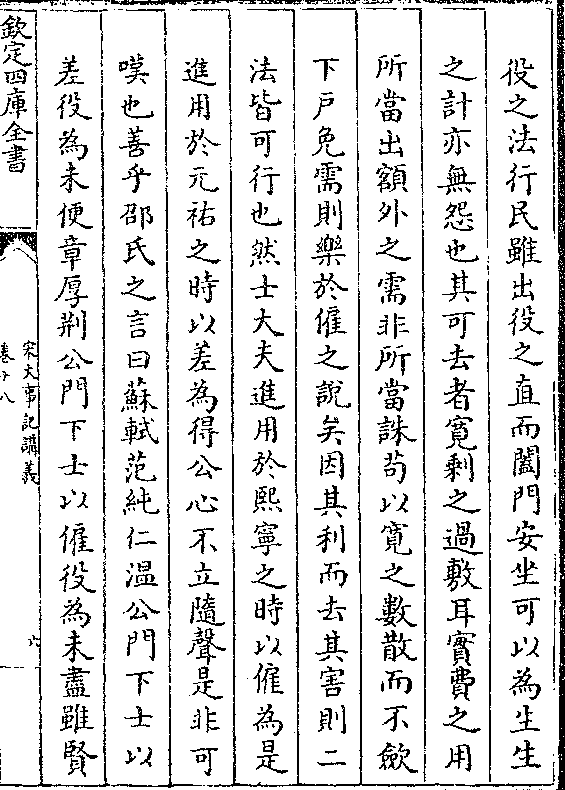 役之法行民雖出役之直而闔門安坐可以為生生
之計亦無怨也其可去者寛剰之過敷耳實費之用
所當出額外之需非所當誅茍以寛之數散而不斂
下戸免需則樂於僱之說矣因其利而去其害則二
法皆可行也然士大夫進用於熙寧之時以僱為是
進用於元祐之時以差為得公心不立隨聲是非可
嘆也善乎邵氏之言曰蘇軾范純仁溫公門下士以
差役為未便章厚荆公門下士以僱役為未盡雖賢
欽定四庫全書
宋大事記講義
卷十八
六